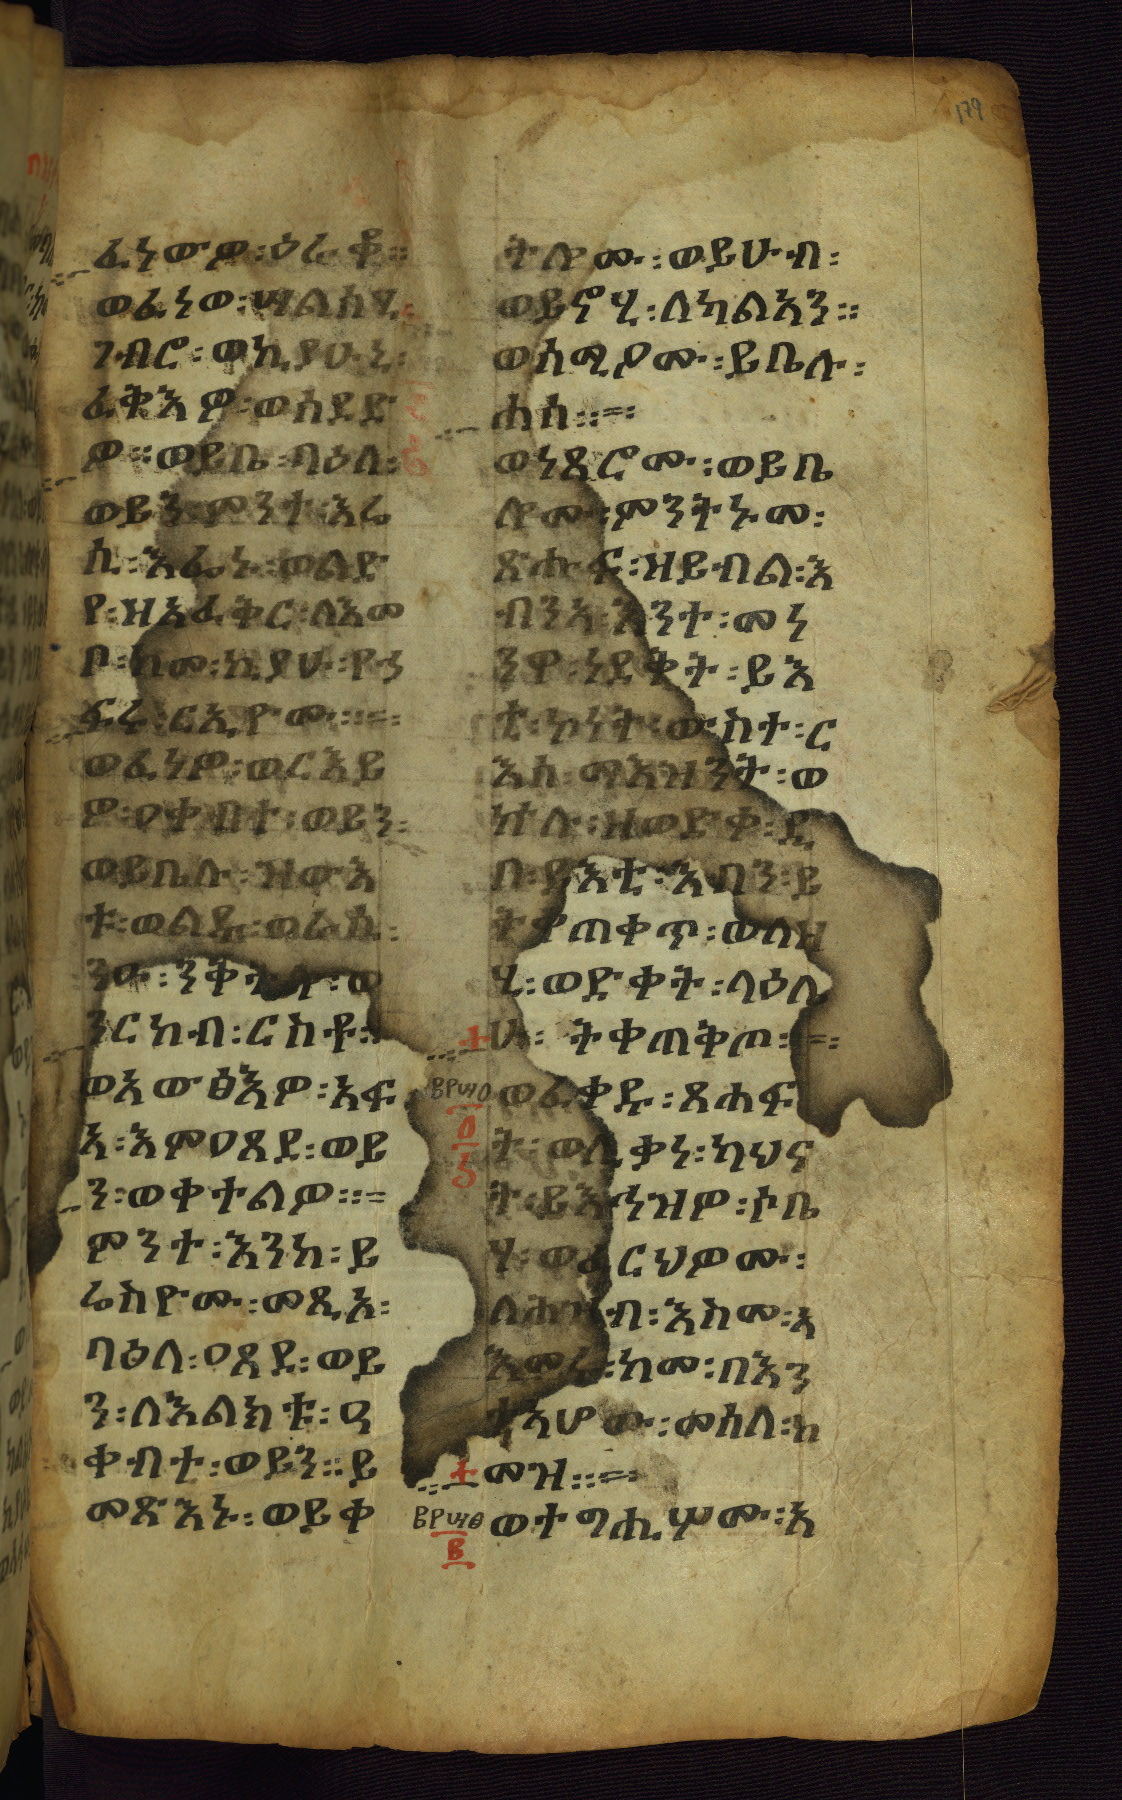 179
ፈነውዎ፡ዕራቆ፡፡
ወፈነወ፡ሣልስሂ፡
ገብሮ፡ወኪያሁኒ፡
ፈቅእዎ፡ወሰደድ
ዎ፡፡ወይቤ፡ባዕለ፡
ወይን፡ምንተ፡እሬ
ሲ፡እፌኑ፡ወልድ
የ፡ዝአፈቅር፡ለእመ
ቦ፡ከመ፡ኪያሁ፡የኃ
ፍሩ፡ርኢዮሙ፡፡=
ወፈነዎ፡ወርእይ
ዎ፡ዐቀብተ፡ወይን፡
ወይቤሉ፡ዝውእ
ቱ፡ወልዱ፡ወራሲ፡
ንዑ፡ንቅትሎ፡ወ
ንርከብ፡ርስቶ፡
ወአውፅእዎ፡አፍ
አ፡እምዐጸደ፡ወይ
ን፡ወቀተልዎ፡፡=
ምንተ፡እንከ፡ይ
ሬስዮሙ፡መጺኦ፡
ባዕለ፡ዐጸደ፡ወይ
ን፡ለእልክቱ፡ዐ
ቀብተ፡ወይን፡፡ይ
መጽእኑ፡ወይቀ
ትሎሙ፡ወይሁብ፡
ወይኖሂ፡ለካልኣን፡፡
ወሰሚዖሙ፡ይቤሉ፡
ሐሰ፡፡=፡
ወነጸሮሙ፡ወይቤ
ሎሙ፡ምንትኑመ፡
ጽሑፍ፡ዝይብል፡እ
ብንኣ፡እንተ፡መነ
ንዋ፡ነደቅት፡ይእ
ቲ፡ኮነት፡ውስተ፡ር
እሰ፡ማእዝንት፡ወ
ኵሉ፡ዘወድቀ፡ዲ
በ፡ይእቲ፡እብን፡ይ
ትቀጠቀጥ፡ወለዘ
ሂ፡ወድቀት፡ላዕሌ
ሁ፡ ትቀጠቅጦ፡=፡
ወፈቀዱ፡ጸሐፍ
ት፡ወሊቃነ፡ካህና
ት፡ይእኅዝዎ፡ሶቤ
ሃ፡ወፈርህዎሙ፡
ለሕዝብ፡እስመ፡አ
እመሩ፡ከመ፡በእን
ቲኣሆሙ፡መሰለ፡ከ
መዝ፡፡=
ወተግሒሦሙ፡አ